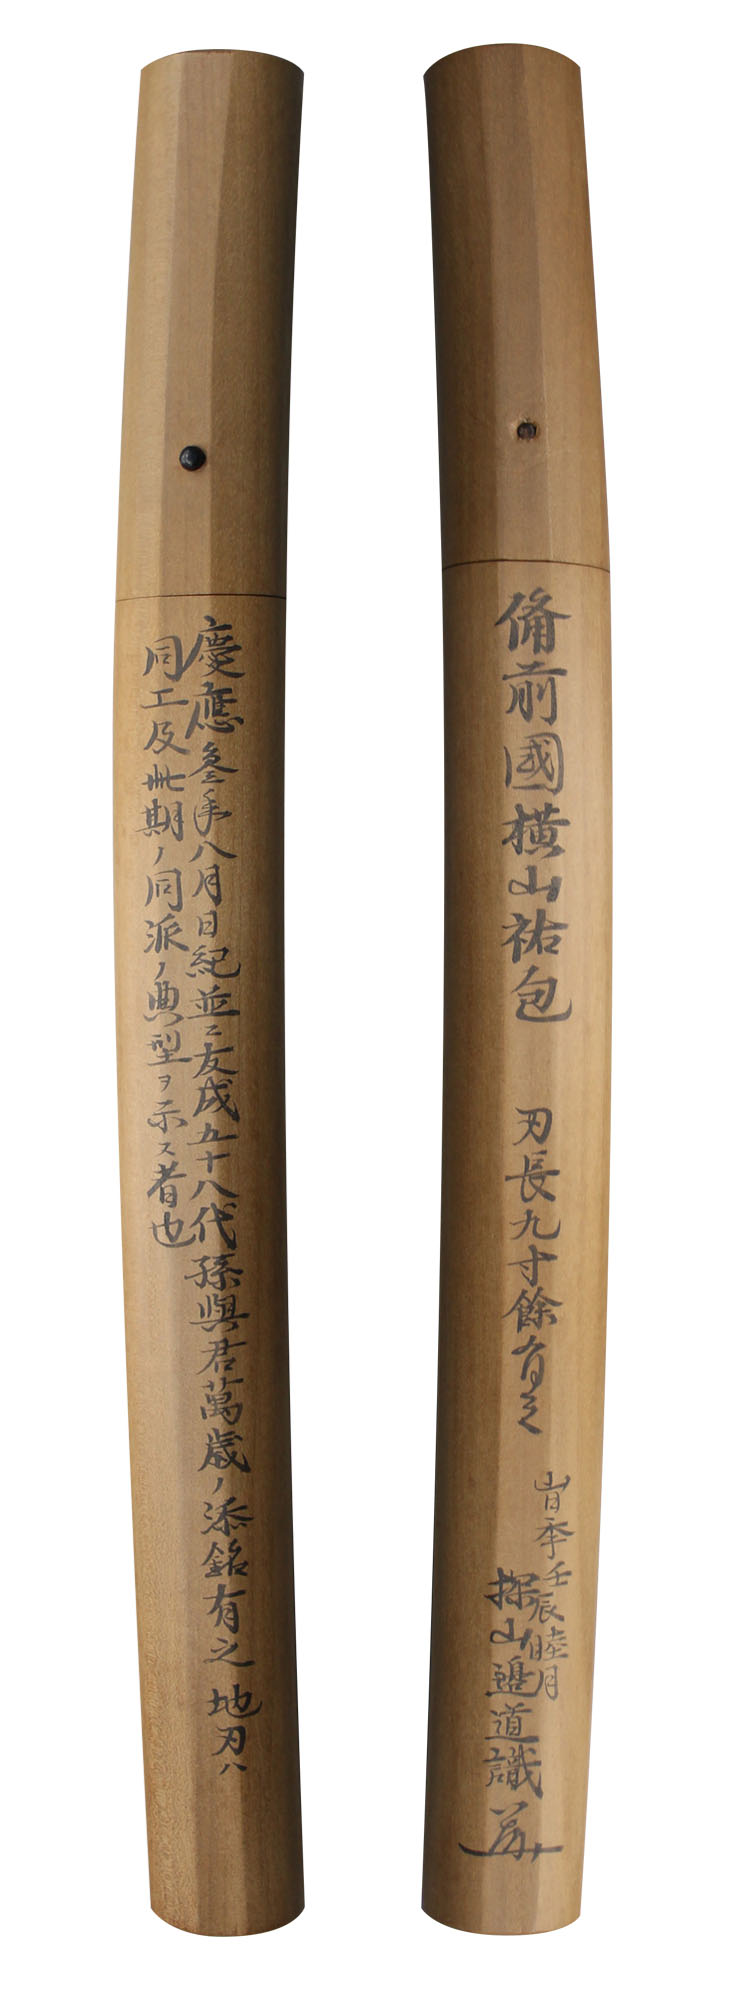 備前國横山祐包 刃長九寸餘有之
旹季壬辰睦月
探山邉道識
慶應叄年八月日紀並ニ友成五十八代孫與君萬歳ノ添銘有之 地刃ハ
同工及此期ノ同派ノ典型ヲ示ス者也